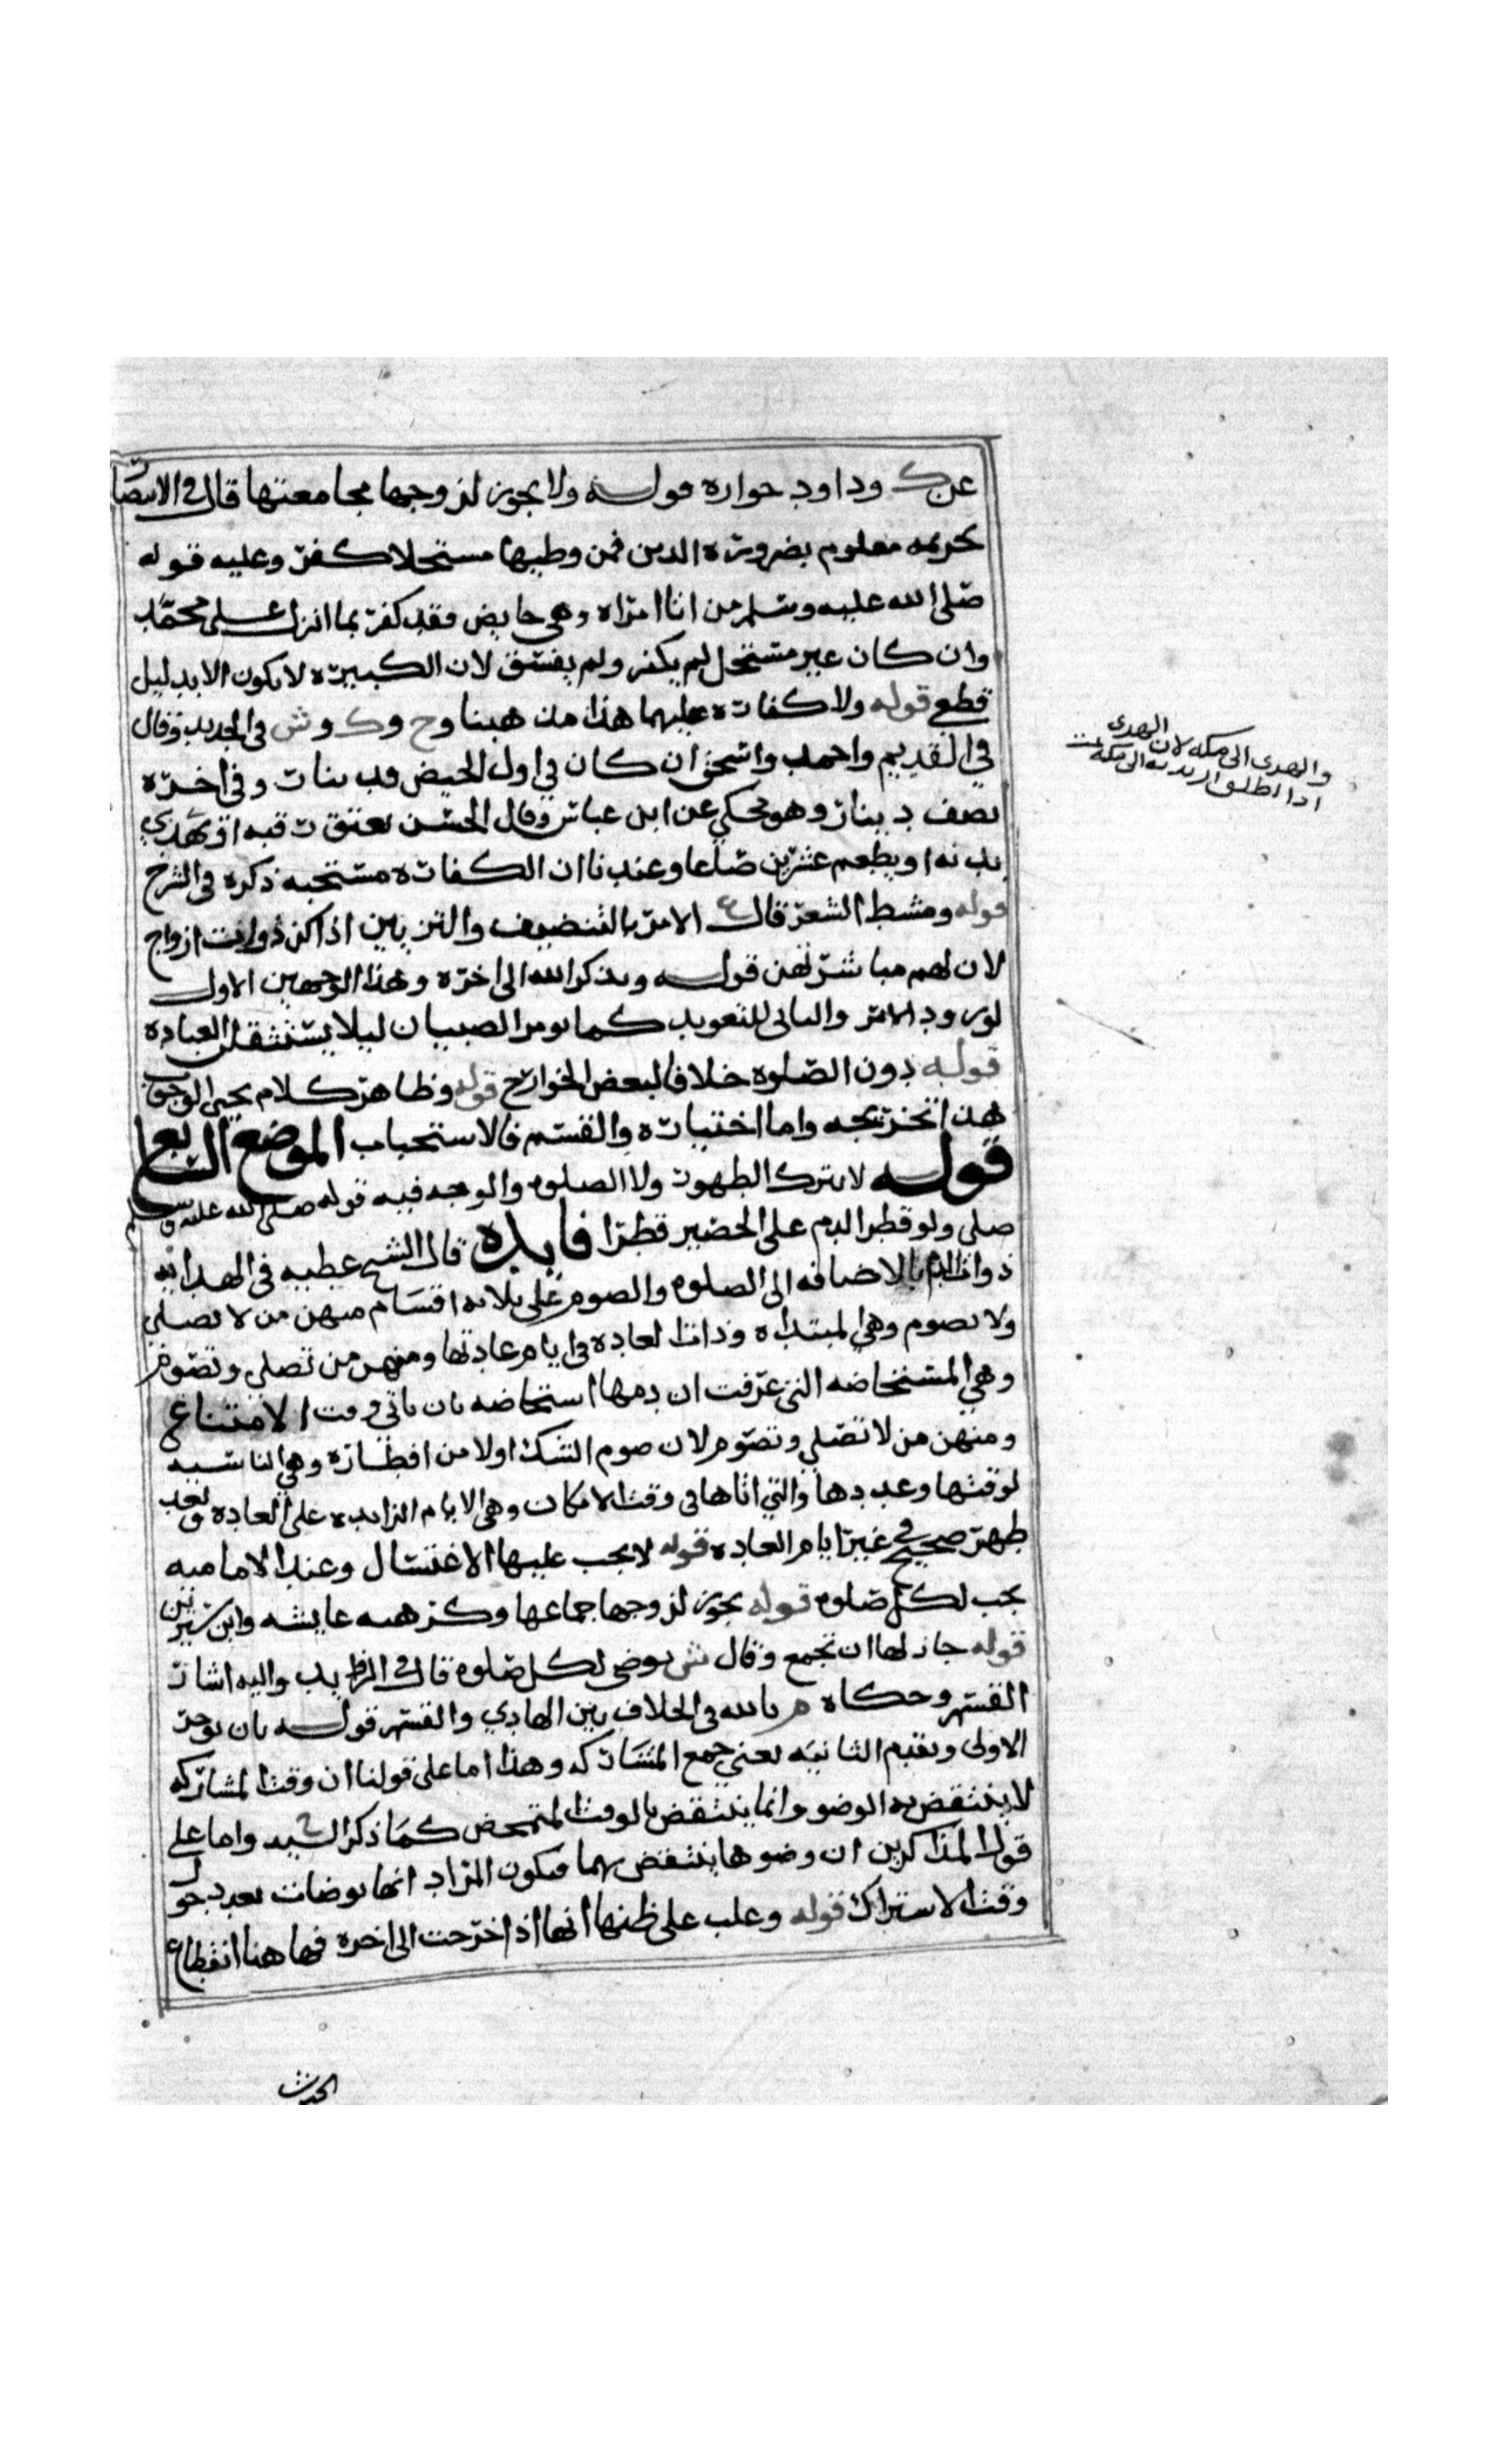 عن ك وداود جوازه قوله ولا يجوز لزوجها مجامعتها قال في الانتصار
تحريمه معلوم بضرورة الدين فمن وطيها مستحلا كفر وعليه قوله
صلى الله عليه وسلم من اتا امراه وهي حايض فقد كفر بما انزل على محمد
وان كان غير مستحل لم يكفر ولم يفسق لان الكبيرة لا يكون الا بدليل
قطعي قوله ولا كفارة عليهما هذا مذهبنا وح وك وش في الجديد وقال
في القديم واحمد واسحق ان كان في اول الحيض فدينار وفي اخره
نصف دينار وهو محكي عن ابن عباس وقال الحسن يعتق رقبه او يهدي
بدنه او يطعم عشرين صاعا وعندنا ان الكفارة مستحبه ذكره في الشرح
قوله ومشط الشعر قال ع الامر بالتنضيف والتزيين اذا كن ذوات ازواج
لان لهم مباشرتهن قوله ويذكر الله الى اخره وهذا لوجهين الاول
لورود الامر والثاني للتعويد كما يومر الصبيان ليلا يستثقلن العبادة
قوله دون الصلوة خلافا لبعض الخوارج قوله وظاهر كلام يحيى الوجوب
هذا تخريجه واما اختياره والقسم فالاستحباب الموضع الرابع
قوله لا يترك الطهور ولا الصلوه والوجه فيه قوله صلى الله عليه وسلم
صلي ولو قطر الدم على الحصير قطرا فايده قال الشيخ عطيه في الهدايه
ذوات الدم بالاضافه الى الصلوه والصوم على ثلاثه اقسام منهن من لا تصلي
ولا تصوم وهي المبتداه وذات العاده في ايام عادتها ومنهن من تصلي وتصوم
وهي المستحاضه التي عرفت ان دمها استحاضه بان ياتي وقت الامتناع
ومنهن من لا تصلي وتصوم لان صوم الشك اولا من افطاره وهي الناسيه
لوقتها وعددها والتي اتاها في وقت الامكان وهي الايام الزايده على العاده وبعد
طهر صحيح في غير ايام العاده قوله لا يجب عليها الاغتسال وعند الاماميه
يجب لكل صلوه قوله يجوز لزوجها جماعها وكرهه عايشه وابن سيرين
قوله جاز لها ان تجمع وقال ش توضي لكل صلوه قال في واليه اشار
القسم وحكاه م بالله في الخلاف بين الهادي والقسم قوله بان توخر
الاولى وتقدم الثانيه يعني جمع المشاركه وهذا اما على قولنا ان وقت المشاركه
لا ينتقض به الوضوء وانما ينتقض بالوقت المتمحض كما ذكر السيد واما على
قول المذاكرين ان وضوها ينتقض بهما فيكون المراد انها توضات بعد دخول
وقت الاشتراك قوله وغلب على ظنها انها اذا اخرت الى اخره فهاهنا انقطاع
والهدي الى مكه لان الهدي
اذا اطلق اريد به الى مكه
الحدث